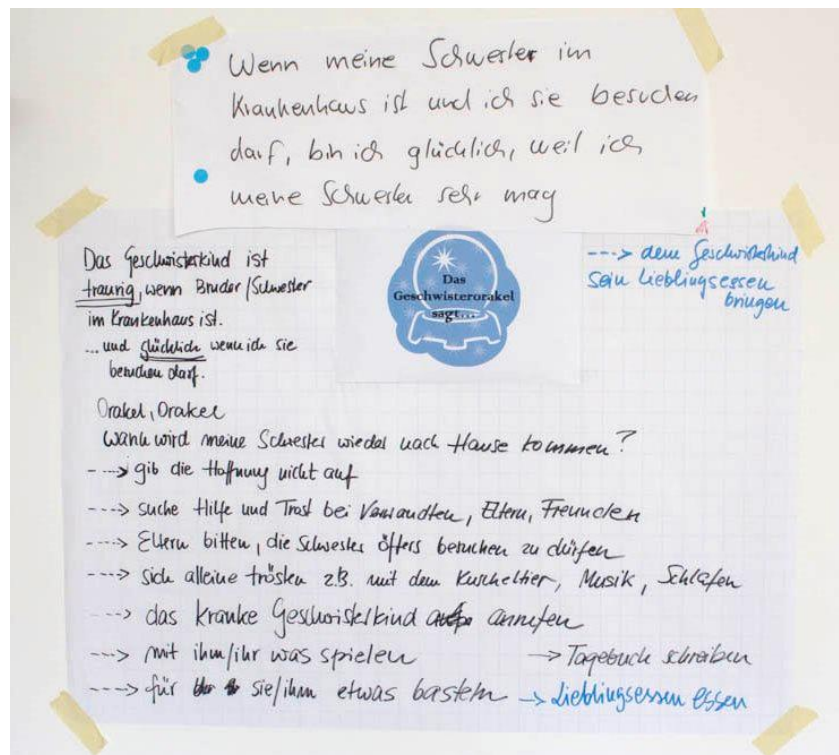 Wenn meine Schwester im
Krankenhaus ist und ich sie besuchen
darf, bin ich glücklich, weil ich
meine Schwester sehr mag
Das Geschwisterkind ist
traurig, wenn Bruder/Schwester
im Krankenhaus ist.
...und glücklich wenn ich sie
besuchen darf.
Das
Geschwisterorakel
sagt...
---> dem Geschwisterkind
sein Lieblingsessen
bringen
Orakel, Orakel
Wann wird meine Schwester wieder nach Hause kommen?
---> gib die Hoffnung nicht auf
---> suche Hilfe und Trost bei Verwandten, Eltern, Freunden
---> Eltern bitten, die Schwester öfters besuchen zu dürfen
---> sich alleine trösten z.B. mit dem Kuscheltier, Musik, Schlafen
---> das kranke Geschwisterkind anrufen
---> mit ihm/ihr was spielen → Tagebuch schreiben
---> für sie/ihm etwas basteln → Lieblingsessen essen